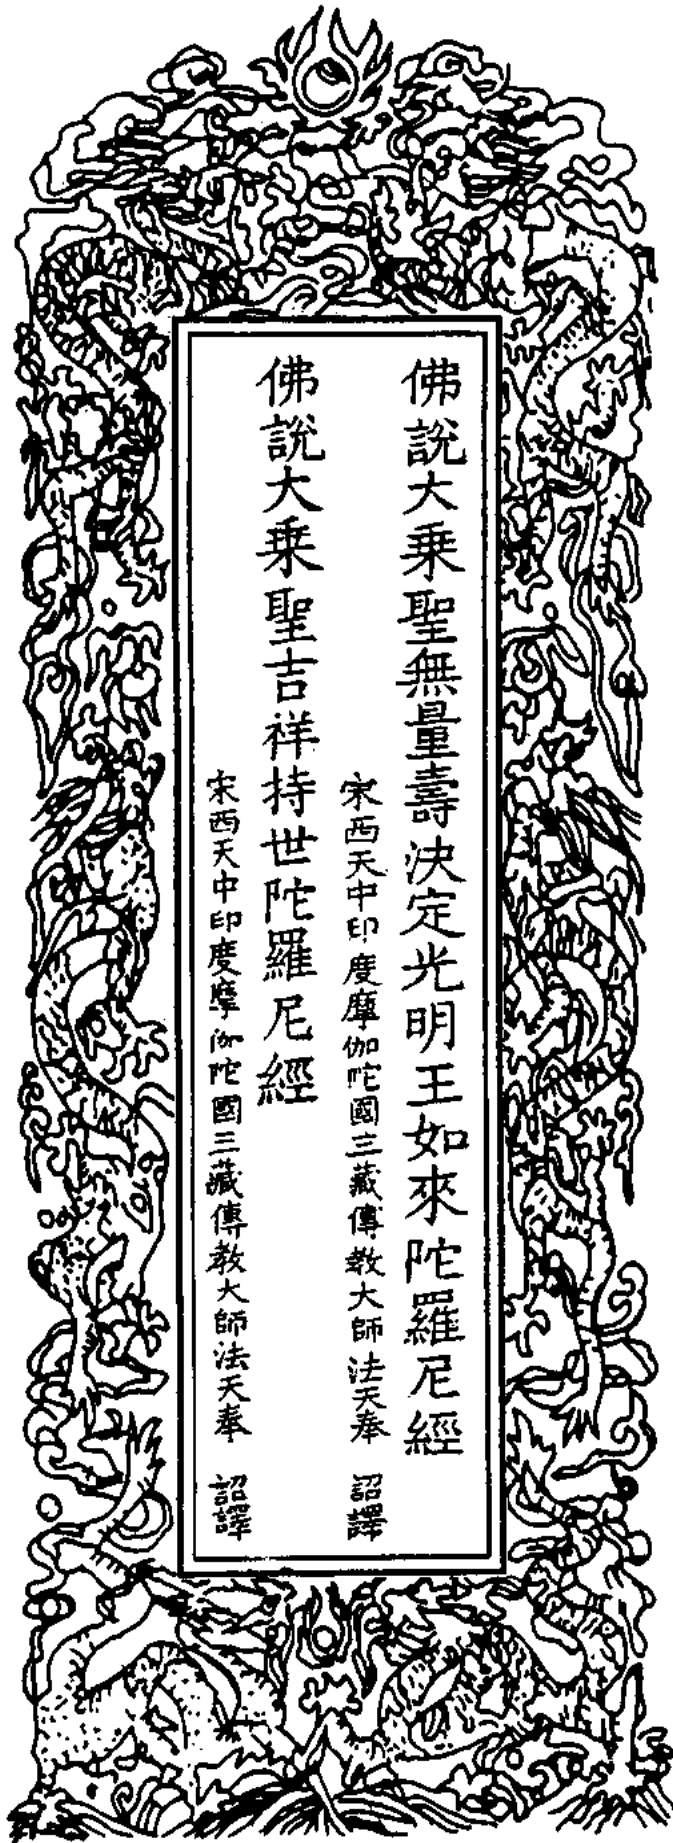 佛說大乗聖無量壽決定光明王如來陀羅尼經
宋西天中印度摩伽陀國三藏傳教大師法天奉 詔譯
佛說大乗聖吉祥持世陀羅尼經
宋西天中印度摩伽陀國三藏傳教大師法天奉 詔譯